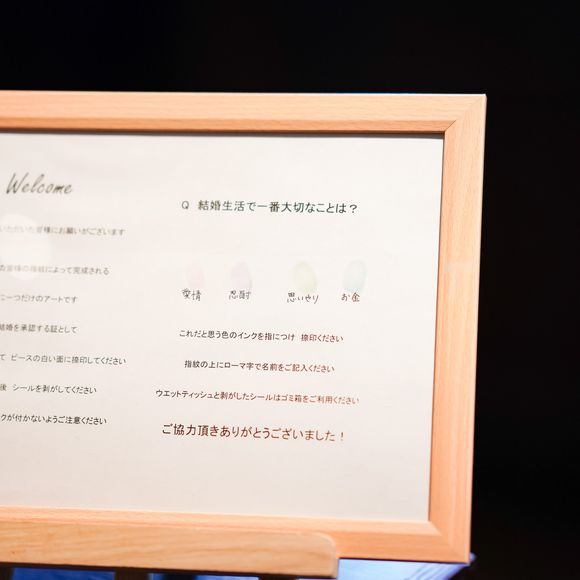 Welcome
いただいた皆様にお願いがございます
皆様の指紋によって完成される
一つだけのアートです
結婚を承認する証として
て ピースの白い面に捺印してください
後 シールを剥がしてください
クが付かないようご注意ください
Q 結婚生活で一番大切なことは？
愛情 忍耐 思いやり お金
これだと思う色のインクを指につけ 捺印ください
指紋の上にローマ字で名前をご記入ください
ウエットティッシュと剥がしたシールはゴミ箱をご利用ください
ご協力頂きありがとうございました！